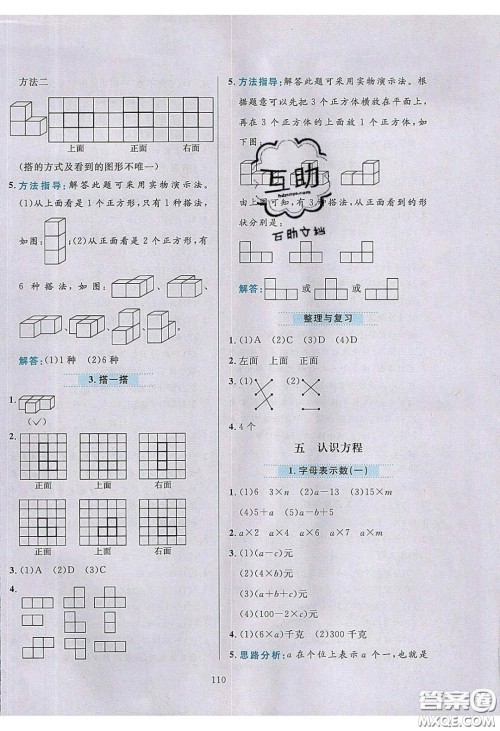 方法二
上面 正面 右面
(搭的方式及看到的图形不唯一)
5. 方法指导:解答此题可采用实物演示法。
(1)从上面看是1个正方形,只有1种搭法,
如图: ;(2)从正面看是2个正方形,有
6种搭法,如图:
解答:(1)1种 (2)6种
3.搭一搭
1.
(✓)
2.
正面 上面 右面
正面 上面 右面
3. (1)A (2)D (3)C
4.
5. 方法指导:解答此题可采用实物演示法。根
据题意可以先把3个正方体横放在平面上,
再在3个正方体的上面放1个正方体,如
下图:
由上图可知,有3种摆法,从正面看到的形
状分别是:
解答: 或 或
整理与复习
1. (1)A (2)C (3)D (4)A
2. 左面 上面 正面
3. (1) (2)
4. 4个
五 认识方程
1.字母表示数(一)
1. (1)6 3×n (2)a-13 (3)15×m
(4)5+a (5)b÷5
2. a×2 a×4 a×6 a×8 a×4
3. (1)(a-c)元
(2)(4×b)元
(3)(a+b+c)元
(4)(100-2×c)元
4. (1)(6×a)千克 (2)300千克
5. 思路分析:a在个位上表示a个一,也就是
110
互助
互助文档
答案圈
MXQE.COM